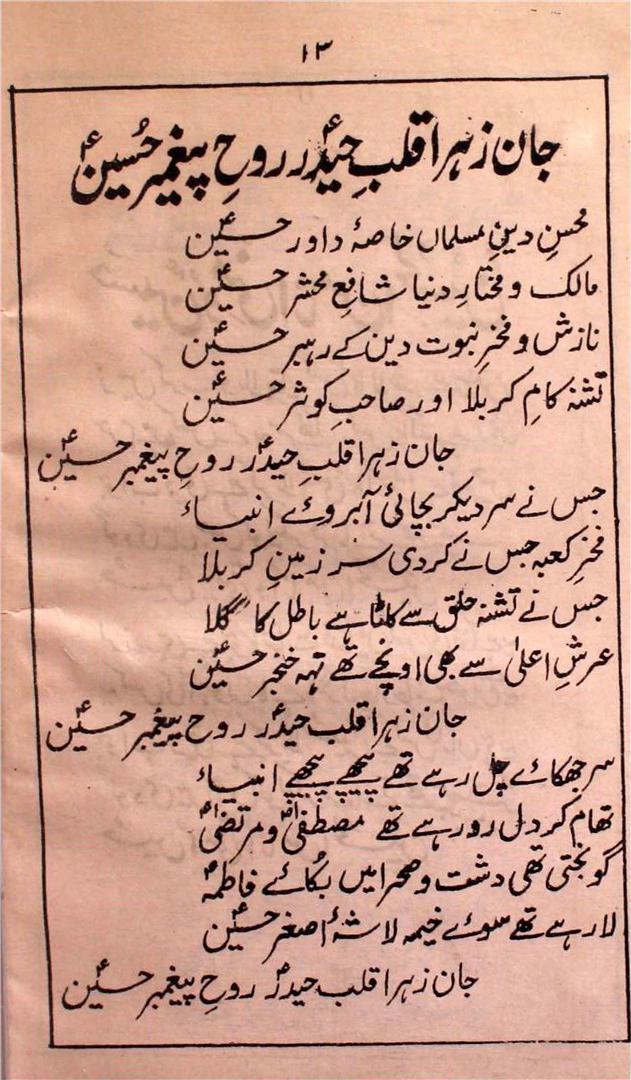 ۱۳
جان زہرا قلبِ حیدرؑ روحِ پیغمبر حُسینؑ
محسنِ دینِ مسلماں خاصۂ داور حسینؑ
مالک و مختارِ دنیا شافعِ محشر حسینؑ
نازش و فخرِ نبوت دین کے رہبر حسینؑ
تشنہ کامِ کربلا اور صاحبِ کوثر حسینؑ
جان زہرا قلبِ حیدرؑ روحِ پیغمبر حسینؑ
جس نے سر دیکر بچائی آبروئے انبیاء
فخرِ کعبہ جس نے کر دی سر زمینِ کربلا
جس نے تشنہ حلق سے کاٹا ہے باطل کا گلا
عرشِ اعلیٰ سے بھی اونچے تھے تہہ خنجر حسینؑ
جان زہرا قلب حیدرؑ روح پیغمبر حسینؑ
سر جھکائے چل رہے تھے پیچھے پیچھے انبیاء
تھام کر دل رو رہے تھے مصطفیٰؐ و مرتضیٰؑ
گونجتی تھی دشت و صحرا میں بُکائے فاطمہؑ
لا رہے تھے سوئے خیمہ لاشۂ اصغر حسینؑ
جان زہرا قلب حیدرؑ روحِ پیغمبر حسینؑ